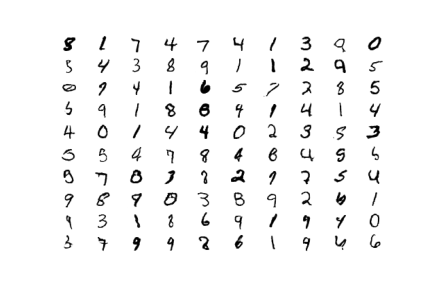 8 1 7 4 7 4 1 3 9 0
5 4 3 8 9 1 1 2 9 5
0 9 4 1 6 5 7 2 8 5
5 9 1 8 8 4 1 4 1 4
4 0 1 4 4 0 2 3 5 3
5 5 4 7 8 4 6 4 5 5
5 7 8 3 8 2 9 7 5 4
9 8 9 8 3 8 9 2 6 1
9 3 1 8 6 9 1 9 4 0
3 7 9 9 8 6 1 9 4 6